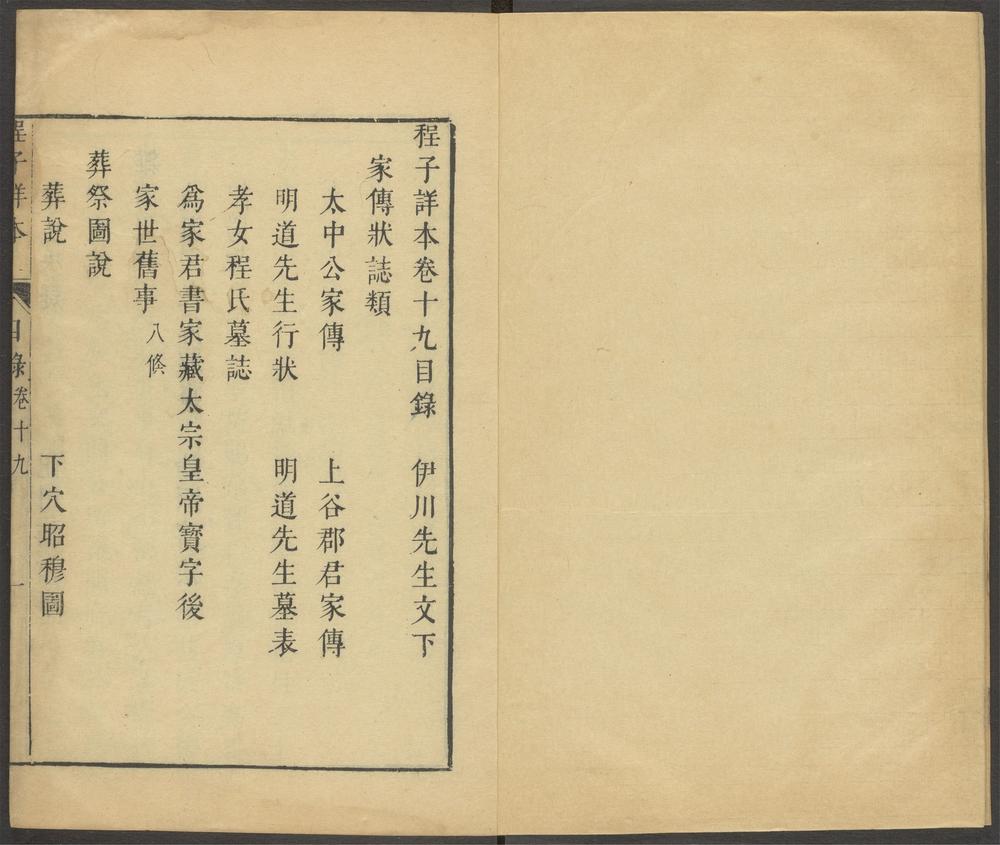 程子詳本卷十九目錄　伊川先生文下
家傳狀誌類
太中公家傳　上谷郡君家傳
明道先生行狀　明道先生墓表
孝女程氏墓誌
爲家君書家藏太宗皇帝寶字後
家世舊事 八條
葬祭圖說
葬說　下穴昭穆圖
程子詳本　目錄卷十九　一